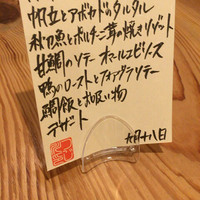 帆立とアボカドのタルタル
秋刀魚とポルチーニ茸の焼きリゾット
甘鯛のソテー オマールエビソース
鴨のローストとフォアグラソテー
鯛飯とお吸い物
デザート
九月十八日